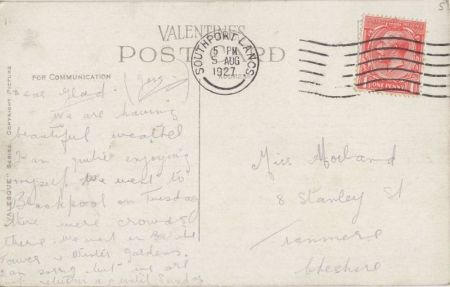 VALENTINE'S
POSTCARD
SOUTHPORT. LANCS
5 PM
5 AUG
1927
ONE PENNY
FOR COMMUNICATION
"VALESQUE" SERIES. COPYRIGHT PICTURE
Dear Glad.
We are having
beautiful weather
I am quite enjoying
myself. We went to
Blackpool on Tuesday
there were crowds
there. We went in
Tower & Winter Gardens.
am sorry but we are
not returning until Sunday
Miss Morland
8 Stanley St
Tranmere
Cheshire
5